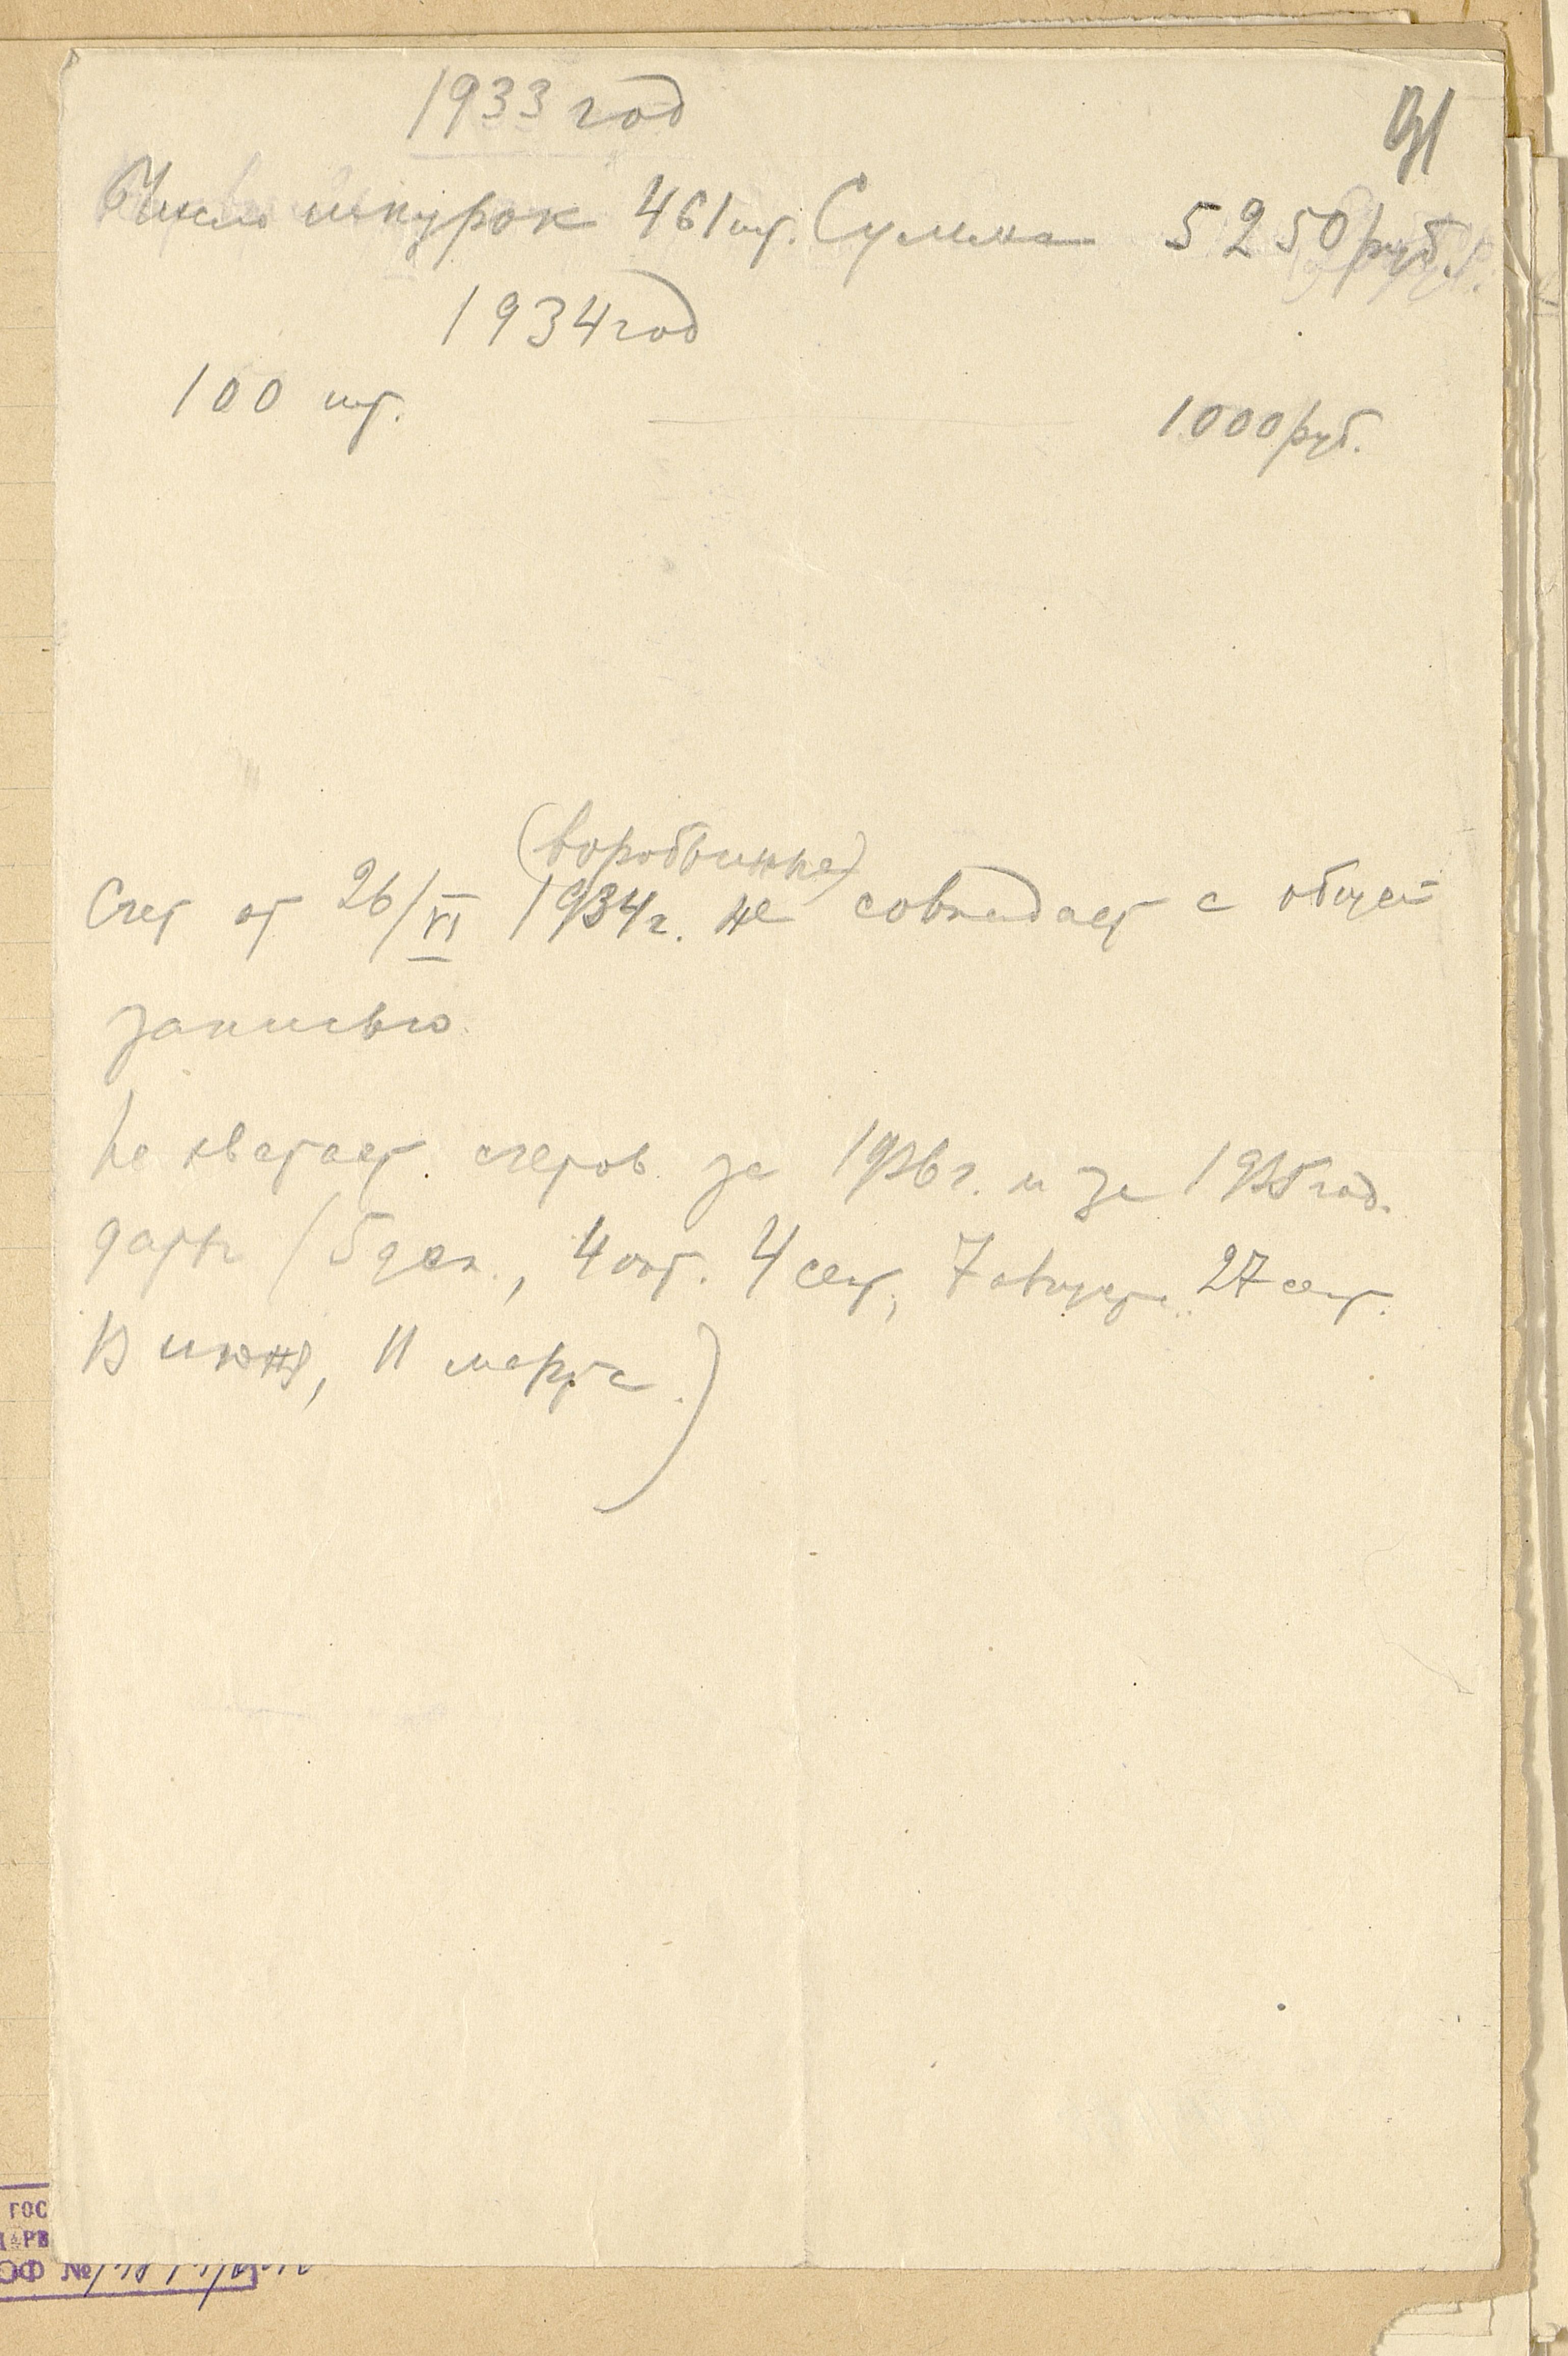 1933 год
91
Число шкурок 461 шт. Сумма 5250 руб.
1934 год
100 шт. 1000 руб.
(воробьиные)
Счет от 26/VI 1934 г. не совпадает с общей
записью.
Не хватает счетов за 1936 г. и за 1935 год.
даты (5 дек., 4 окт. 4 сент, 7 августа 27 сент.
13 июня, 11 марта.)
ГОС
№